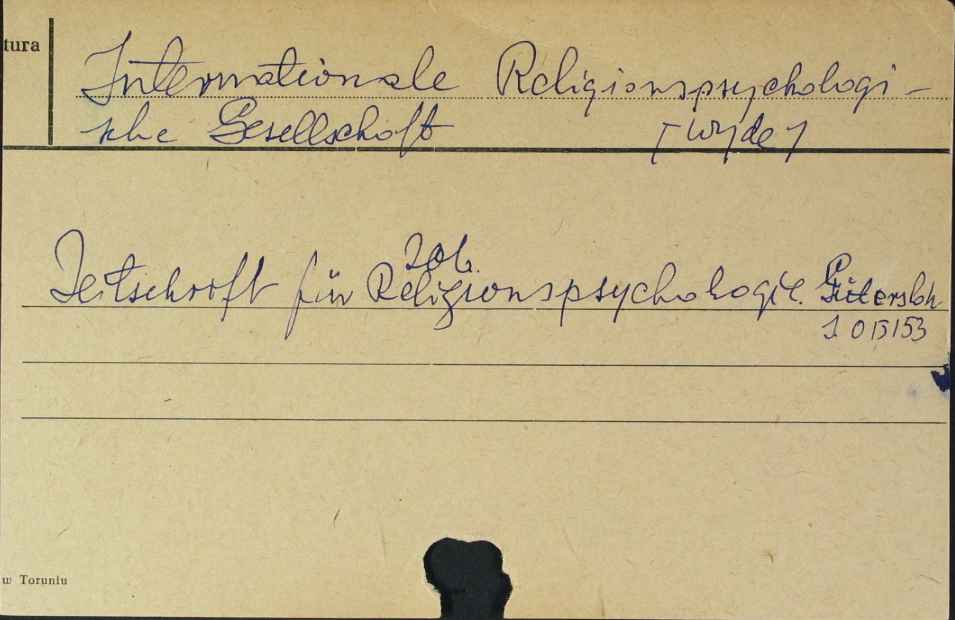 tura
Internationale Religionspsychologi-
sche Gesellschaft [wyde]
Zob.
Zeitschrift für Religionspsychologie. Gütersloh
w Toruniu